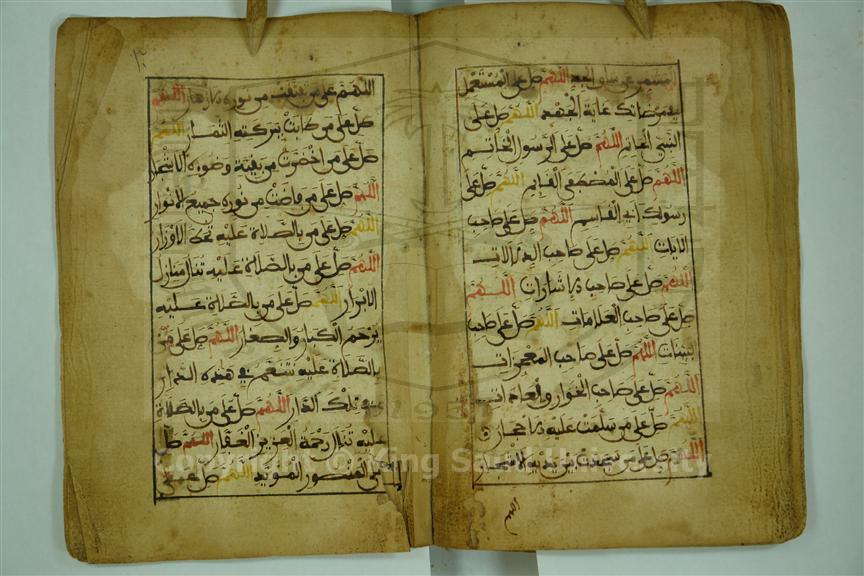 المشمر عن ساق الجد اللهم صل على المستعمل
في مرضاتك غاية الجهد اللهم صل على
النبي الخاتم اللهم صل على الرسول الخاتم
اللهم صل على المصطفى القايم اللهم صل على
رسولك ابي القاسم اللهم صل على صاحب
الايات اللهم صل على صاحب الدلالات
اللهم صل على صاحب الاشارات اللهم
صل على صاحب العلامات اللهم صل على صاحب
البينات اللهم صل على صاحب المعجزات
اللهم صل على صاحب الخوارق العادات
اللهم صل على من سلمت عليه الاحجار
اللهم صل على من سجدت بين يديه الاشجار
اللهم
اللهم صل على من تفتقت من نوره الازهار اللهم
صل على من طابت ببركته الثمار اللهم
صل على من اخضرت من بقية وضوءه الاشجار
اللهم صل على من فاضت من نوره جميع الانوار
اللهم صل على من بالصلاة عليه تحط الاوزار
اللهم صل على من بالصلاة عليه تنال منازل
الابرار اللهم صل على من بالصلاة عليه
يرحم الكبار والصغار اللهم صل على من
بالصلاة عليه نتنعم في هذه الدار
وفي تلك الدار اللهم صل على من بالصلاة
عليه تنال رحمة العزيز الغفار اللهم صل
على المنصور المؤيد اللهم صل على
Copyright © King Saud University
1957